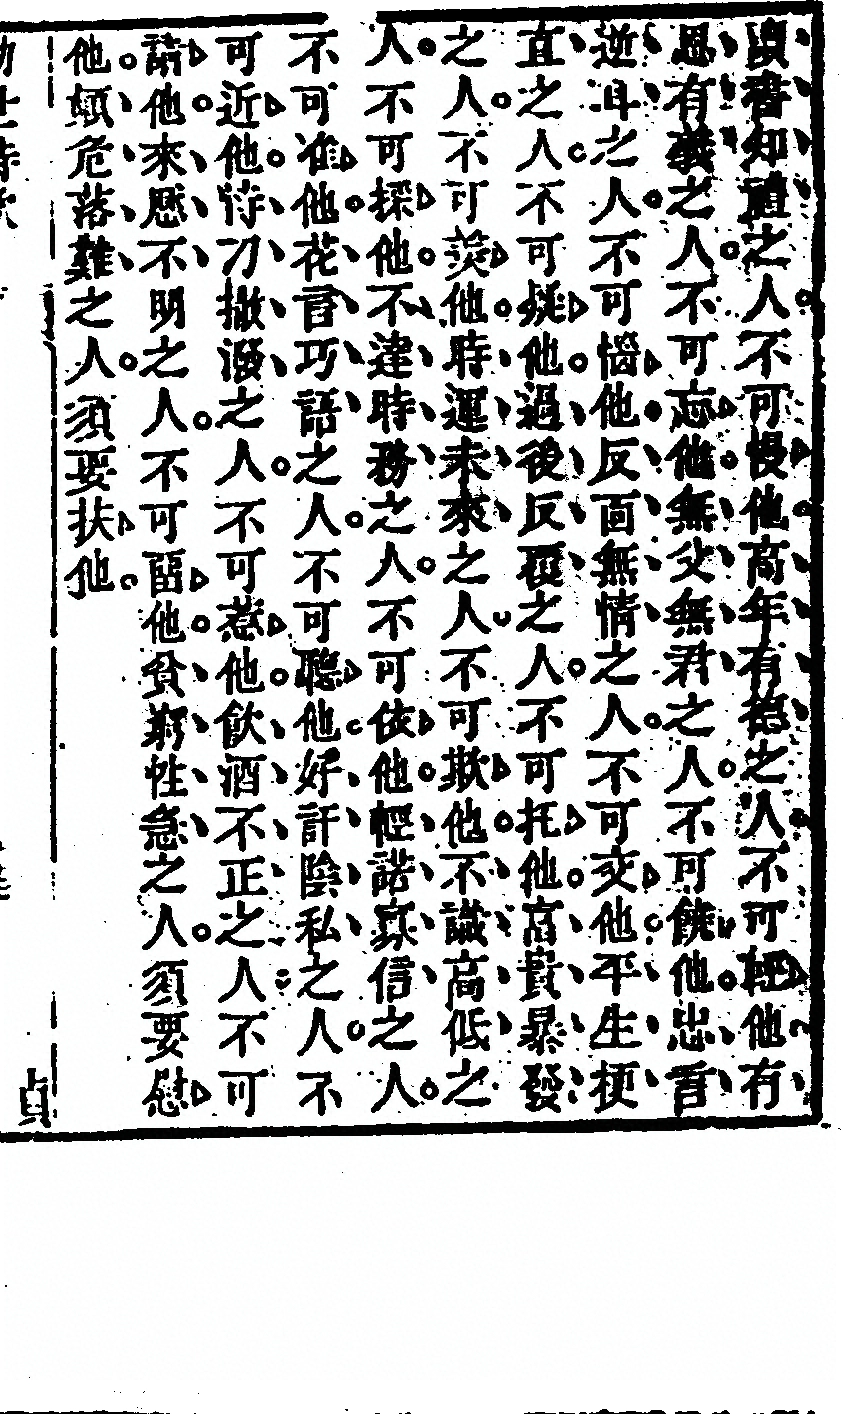 讀書知道之人不可慢他高年有德之人不可輕他有
恩有義之人不可忘他無父無君之人不可饒他忠言
逆耳之人不可惱他反面無情之人不可交他平生梗
直之人不可疑他過後反覆之人不可托他富貴暴發
之人不可羨他時運未來之人不可欺他不識高低之
人不可採他不達時務之人不可依他輕諾寡信之人
不可准他花言巧語之人不可聽他好訐陰私之人不
可近他恃刀撒潑之人不可惹他飲酒不正之人不可
請他來歷不明之人不可留他貧窮性急之人須要慰
他顛危落難之人須要扶他
貞